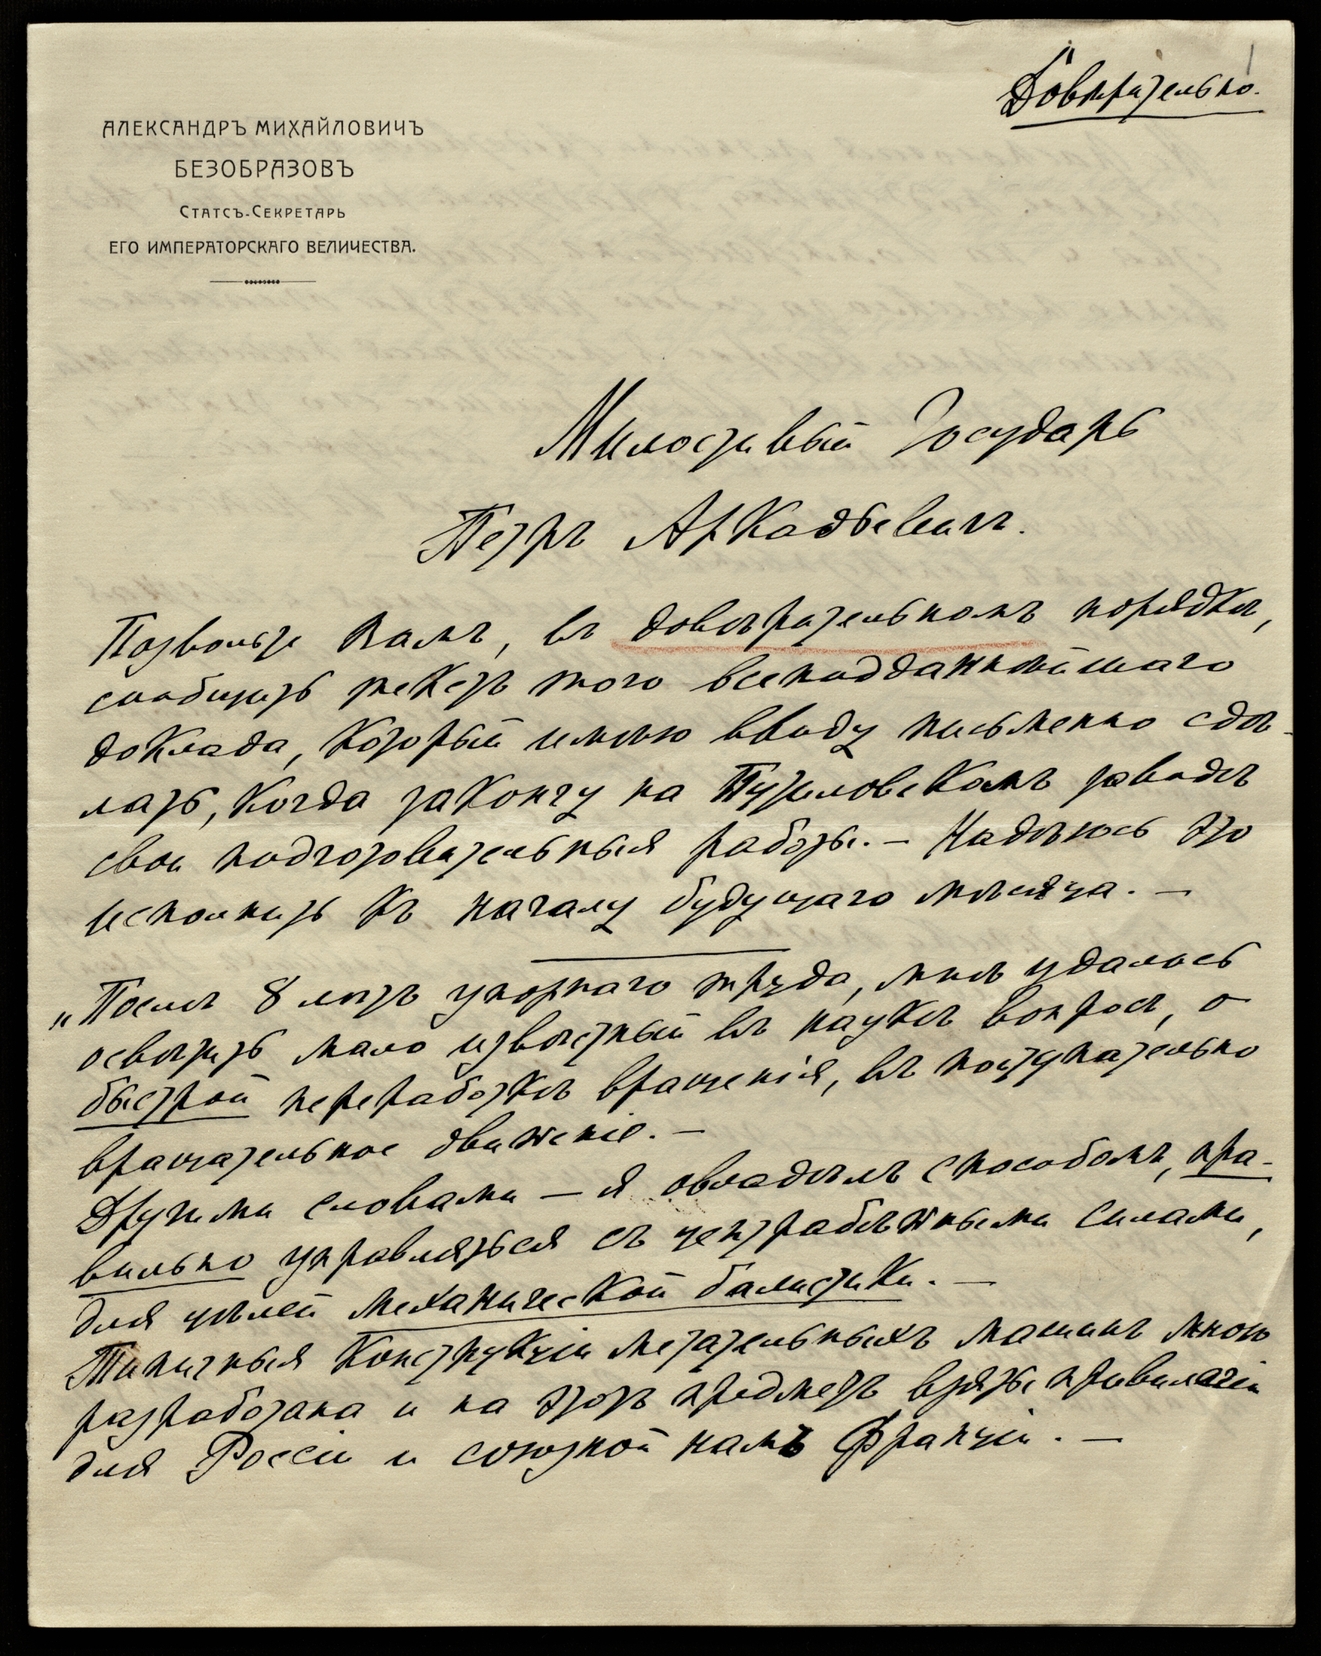 Довѣрительно.
АЛЕКСАНДРЪ МИХАЙЛОВИЧЪ
БЕЗОБРАЗОВЪ
СТАТСЪ-СЕКРЕТАРЬ
ЕГО ИМПЕРАТОРСКАГО ВЕЛИЧЕСТВА.
Милостивый Государь
Петръ Аркадьевичъ.
Позвольте Вамъ, въ довѣрительномъ порядкѣ,
сообщить текстъ того всеподданнѣйшаго
доклада, который имѣю ввиду письменно сдѣ-
лать, когда закончу на Путиловскомъ заводѣ
свои подготовительныя работы. — Надѣюсь это
исполнить къ началу будущаго мѣсяца. —
„Послѣ 8 лѣтъ упорнаго труда, мнѣ удалось
освѣтить мало извѣстный въ наукѣ вопросъ, о
быстрой переработкѣ вращенія, въ поступательно
вращательное движеніе. —
Другими словами — я овладѣлъ способомъ, пра-
вильно управляться съ центрабѣжными силами,
для цѣлей механической балистики. —
Типичныя конструкціи метательныхъ машинъ мною
разработана и на этотъ предметъ взяты привилегіи
для Россіи и союзной намъ Франціи. —